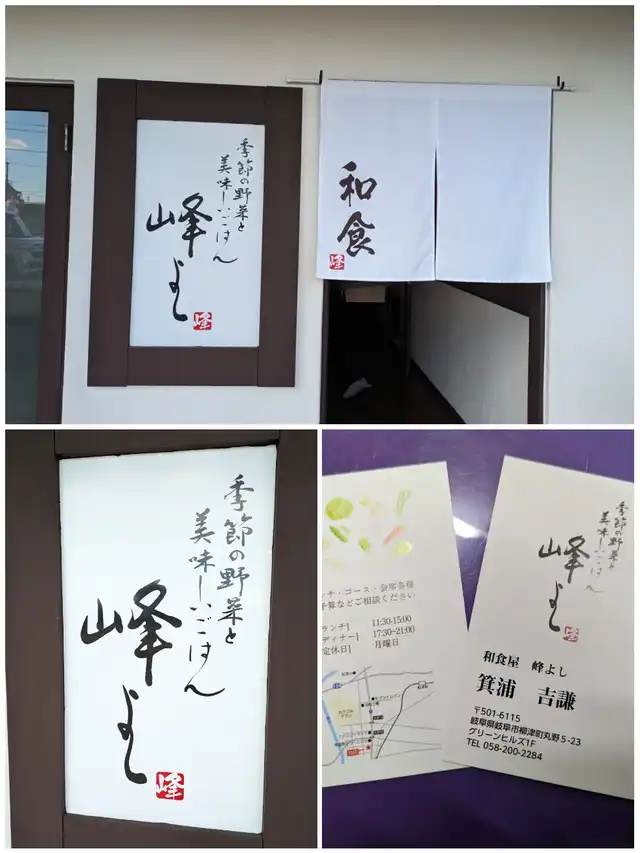 季節の野菜と
美味しいごはん
峰よし
峰
和食
峰
季節の野菜と
美味しいごはん
峰よし
峰
ンチ・コース・会席各種
予算などご相談ください
ランチ] 11:30-15:00
ディナー] 17:30~21:00
定休日] 月曜日
季節の野菜と
美味しいごはん
峰よし
峰
和食屋 峰よし
箕浦 吉謙
〒501-6115
岐阜県岐阜市柳津町丸野5-23
グリーンヒルズ1F
TEL 058-200-2284